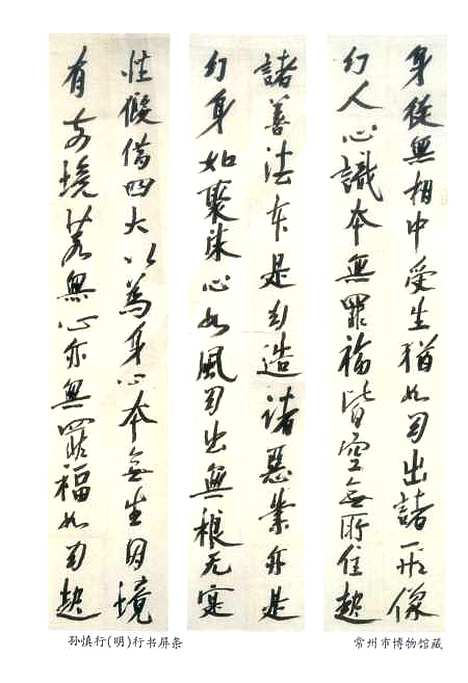 身從無相中受生猶如幻出諸形像
幻人心識本無罪福皆空無所住起
諸善法本是幻造諸惡業亦是
幻身如聚沫心如風幻出無根无寔
性假借四大以為身心本無生因境
有前境若無心亦無罪福如幻起
孙慎行(明)行书屏条
常州市博物馆藏